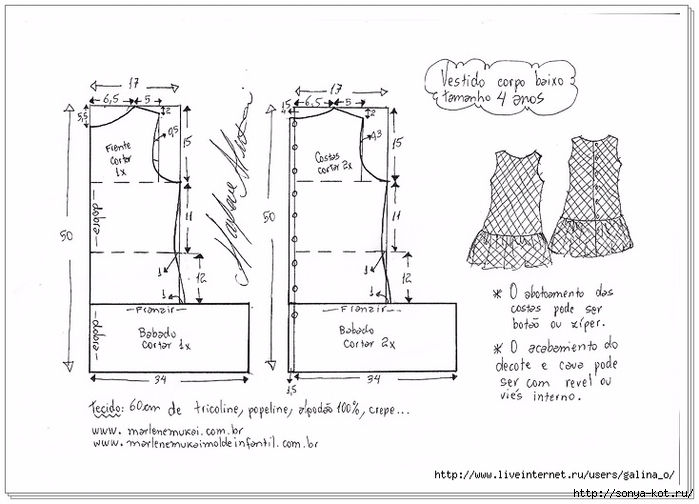 Vestido corpo baixo
tamanho 4 anos
17
6,5 5
5,5
2
0,5
15
Frente
cortar
1x
dobra
11
50
1
12
1
Franzir
dobra
Babado
cortar 1x
34
Marlene Mukai
17
1,5
6,5 5
4
2
0,3
15
Costas
cortar 2x
11
50
1
12
1
Franzir
Babado
cortar 2x
34
1,5
* O abotoamento das
costas pode ser
botão ou zíper.
* O acabamento do
decote e cava pode
ser com revel ou
viés interno.
Tecido: 60cm de tricoline, popeline, algodão 100%, crepe...
www. marlenemukai.com.br
www. marlenemukaimoldeinfantil.com.br
http://www.liveinternet.ru/users/galina_o/
http://sonya-kot.ru/